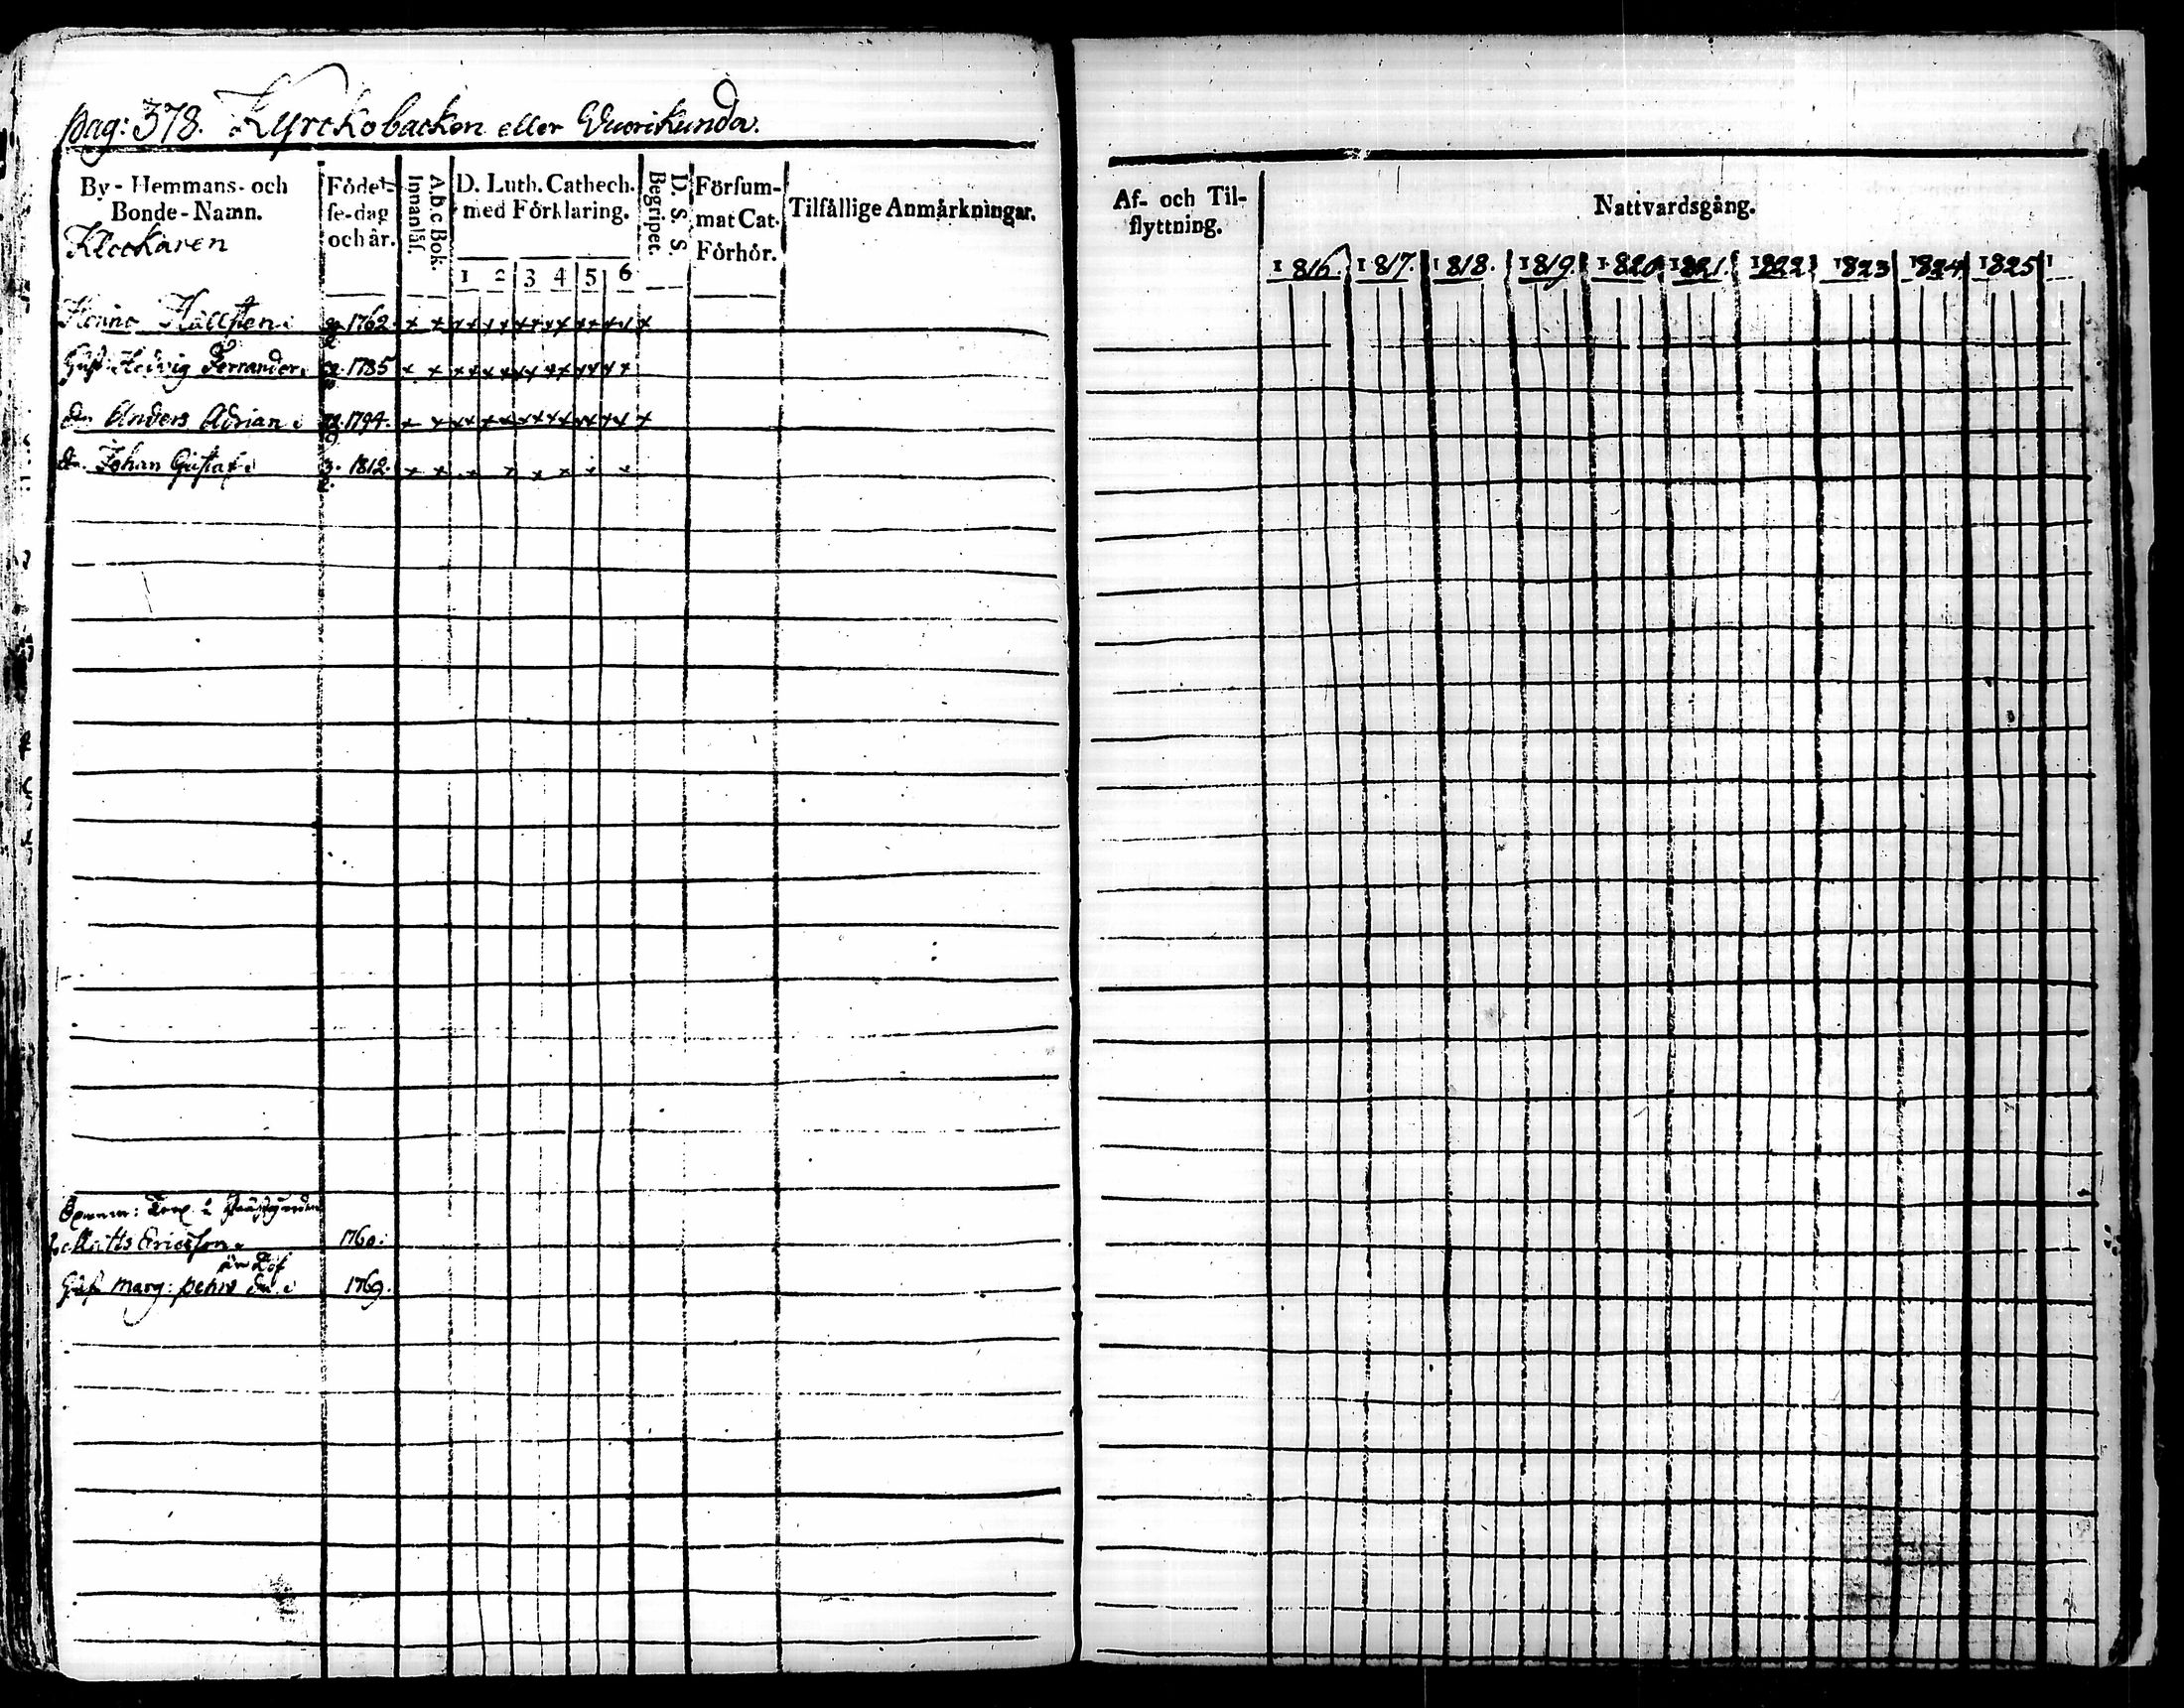 pag: 378. Kyrckobacken eller Vuorikunda.
By-Hemmans- och Bonde-Namn.
Födelse-dag och år.
A b c Bok. Innanläs.
D. Luth. Cathech. med Förklaring.
1 2 3 4 5 6
D. S. S. Begripet.
Försummat Cat. Förhör.
Tilfällige Anmärkningar.
Af- och Tilflyttning.
Nattvardsgång.
1816. 1817. 1818. 1819. 1820 1821. 1822 1823 1824 1825 1
Klockaren
Hällsten 1762. x x x x x x x x x x x x x x x
Hust. Hedvig Ferrander 1785 x x x x x x x x x x x x x x
Anders Adrian 1794. x x x x x x x x x x x x x x x
Johan Gustaf 3. 1812. x x x x x x x x
Torp i Prästgården
Matts Ericsson 1760.
är Döf
Hust Marg: Pehrs dr 1769.